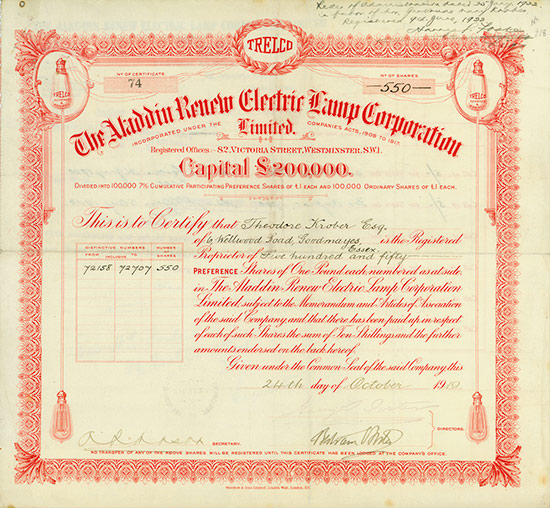 1922
Registered 9th June, 1922
TRELCO
No OF CERTIFICATE
74
No OF SHARES
550
TRELCO
TRELCO
The Aladdin Renew Electric Lamp Corporation
INCORPORATED UNDER THE COMPANIES ACTS, 1908 TO 1917.
Limited.
Registered Offices:- 82, VICTORIA STREET, WESTMINSTER, S.W.1.
Capital £200,000.
DIVIDED INTO 100,000 7% CUMULATIVE PARTICIPATING PREFERENCE SHARES OF £1 EACH AND 100,000 ORDINARY SHARES OF £1 EACH.
This is to Certify that Theodore Krober Esq.
of 6, Wellwood Road, Goodmayes, Essex is the Registered
Proprietor of Five hundred and fifty
PREFERENCE Shares of One Pound each, numbered as at side,
in The Aladdin Renew Electric Lamp Corporation
Limited, subject to the Memorandum and Articles of Association
of the said Company, and that there has been paid up in respect
of each of such Shares the sum of Ten Shillings and the further
amounts endorsed on the back hereof.
Given under the Common Seal of the said Company this
24th day of October 1919
DISTINCTIVE NUMBERS
NUMBER OF SHARES
FROM INCLUSIVE TO
72158 72707 550
SECRETARY.
DIRECTORS.
NO TRANSFER OF ANY OF THE ABOVE SHARES WILL BE REGISTERED UNTIL THIS CERTIFICATE HAS BEEN LODGED AT THE COMPANY'S OFFICE.